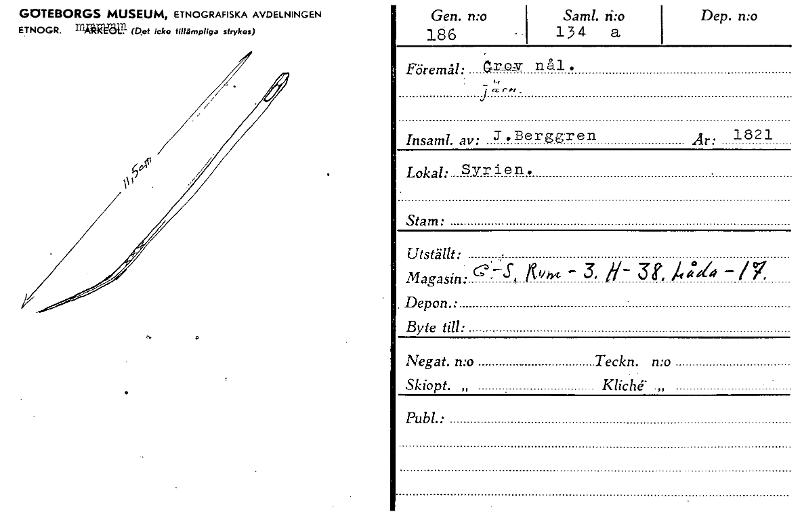 GÖTEBORGS MUSEUM, ETNOGRAFISKA AVDELNINGEN
ETNOGR. ARKEOL. (Det icke tillämpliga strykes)
11,5cm
Gen. n:o Saml. n:o Dep. n:o
186 134 a
Föremål: Grov nål.
järn.
Insaml. av: J.Berggren År: 1821
Lokal: Syrien.
Stam:
Utställt:
Magasin: G-S, Rum - 3. H - 38. Låda - 17.
Depon.:
Byte till:
Negat. n:o Teckn. n:o
Skiopt. „ Kliché „
Publ.: